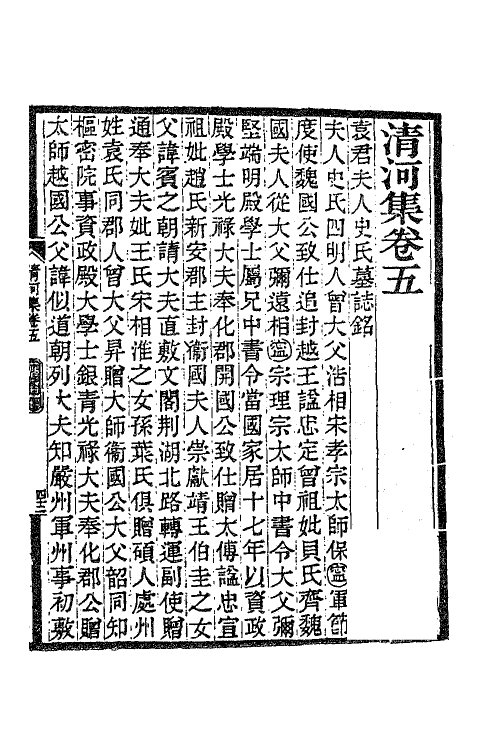 清河集卷五
袁君夫人史氏墓誌銘
夫人史氏四明人曾大父浩相宋孝宗太師保寧軍節
度使魏國公致仕追封越王諡忠定曾祖妣貝氏齊魏
國夫人從大父彌遠相寧宗理宗太師中書令大父彌
堅端明殿學士屬兄中書令當國家居十七年以資政
殿學士光祿大夫奉化郡開國公致仕贈太傅諡忠宣
祖妣趙氏新安郡主封衞國夫人崇獻靖王伯圭之女
父諱賓之朝請大夫直敷文閣荆湖北路轉運副使贈
通奉大夫妣王氏宋相淮之女孫葉氏俱贈碩人處州
姓袁氏同郡人曾大父昇贈大師衞國公大父韶同知
樞密院事資政殿大學士銀青光祿大夫奉化郡公贈
太師越國公父諱似道朝列大夫知嚴州軍州事初敷
清河集卷五